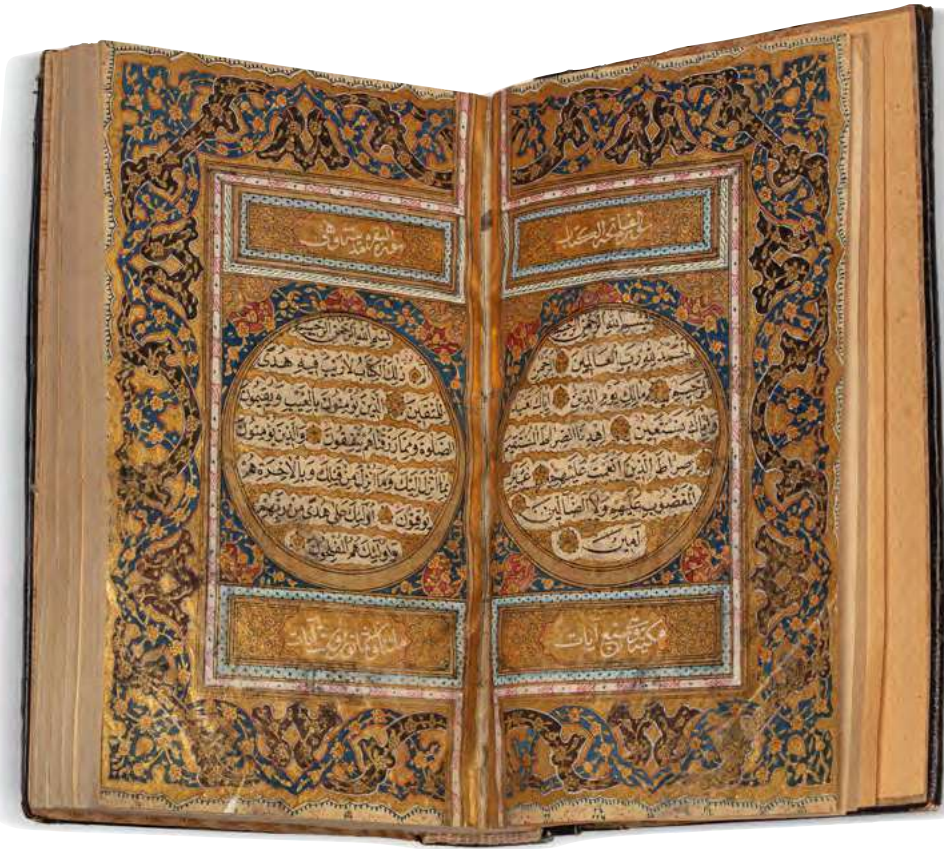 سورة فاتحة الكتاب
بسم الله الرحمن الرحيم
الحمد لله رب العالمين الرحمن
الرحيم مالك يوم الدين اياك نعبد
واياك نستعين اهدنا الصراط المستقيم
صراط الذين انعمت عليهم غير
المغضوب عليهم ولا الضالين
آمين
مكية وهي سبع آيات
سورة البقرة
بسم الله الرحمن الرحيم
ذلك الكتاب لا ريب فيه هدى
للمتقين الذين يؤمنون بالغيب ويقيمون
الصلوة ومما رزقناهم ينفقون والذين يؤمنون
بما انزل اليك وما انزل من قبلك وبالاخرة هم
يوقنون اولئك على هدى من ربهم
واولئك هم المفلحون
آيات